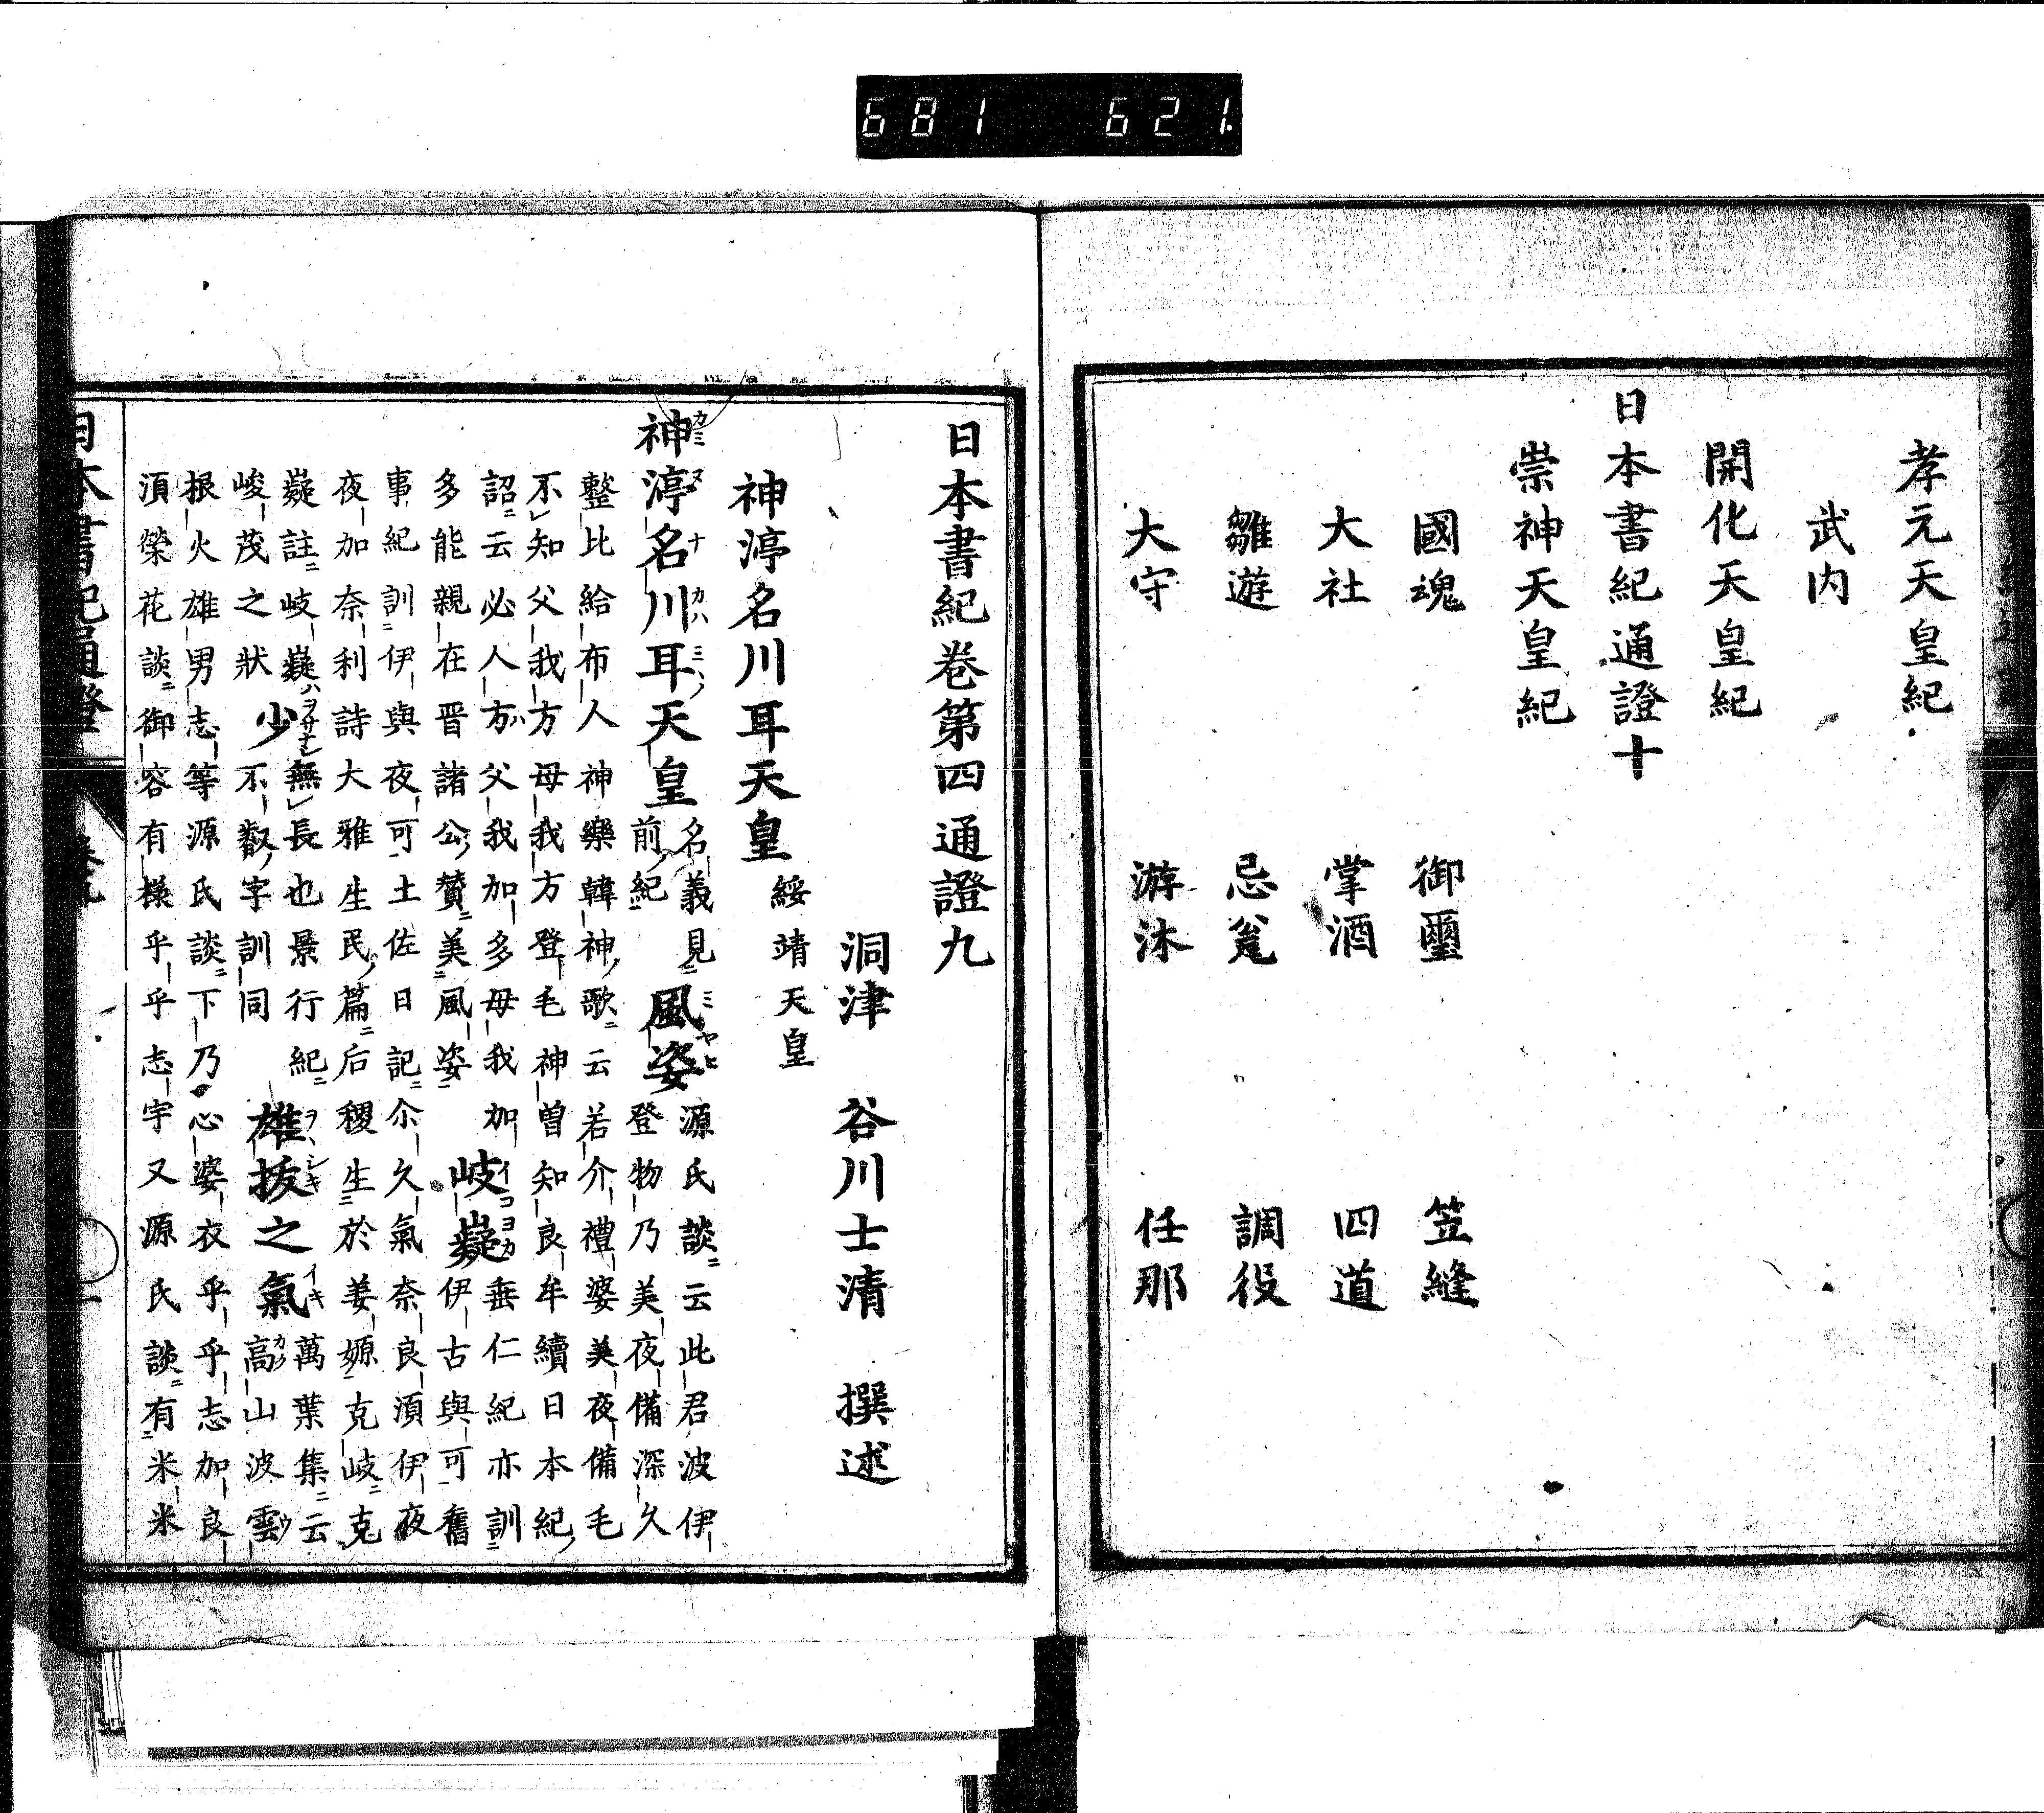 681 621.
孝元天皇紀
武内
開化天皇紀
日本書紀通證十
崇神天皇紀
國魂 御璽 笠縫
大社 掌酒 四道
雛遊 忌瓮 調役
大守 游沐 任那
日本書紀卷第四通證九
洞津 谷川士清 撰述
神渟名川耳天皇 綏靖天皇
神渟名川耳天皇 名義見前紀 風姿 源氏談云此君波伊登物乃美夜備深久
整比給布人神樂韓神歌云若介禮婆美夜備毛
不知父我方母我方登毛神曽知良牟續日本紀
詔云必人方父我加多母我加 垂仁紀亦訓
多能親在晋諸公賛美風姿 岐嶷 伊古與可舊
事紀訓伊與夜可土佐日記尒久氣奈良須伊夜
夜加奈利詩大雅生民篇后稷生於姜嫄克岐克
嶷註岐嶷峻茂之狀 少 無長也景行紀不叡字訓同 雄拔之氣 萬葉集云高山波雲
根火雄男志等源氏談下乃心婆衣乎乎志加良
須榮花談御容有樣乎乎志宇又源氏談有米米
日本書紀通證 卷九 一